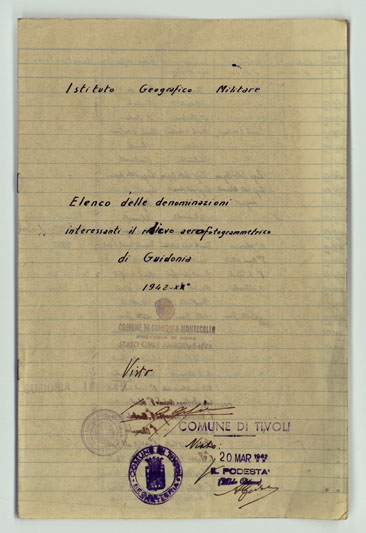 Istituto Geografico Militare
Elenco delle denominazioni
interessanti il rilievo aerofotogrammetrico
di Guidonia
1942-XX°
COMUNE DI GUIDONIA MONTECELIO
PROVINCIA DI ROMA
Visto
COMUNE DI TIVOLI
Visto:
20 MAR 1942
IL PODESTA'
COMUNE DI TIVOLI
SEGRETERIA